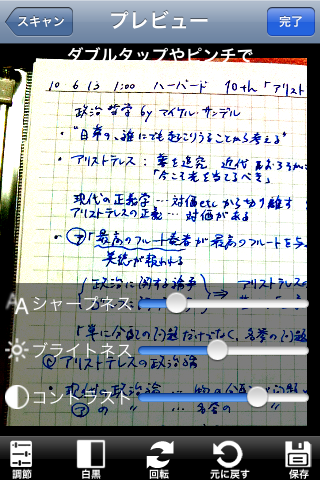 スキャン
プレビュー
完了
ダブルタップやピンチで
10 6 13 1:00 ハーバード 10th 「アリスト
政治哲学 by マイケル・サンデル
・"日常の、誰にでも起こりうることから考える"
・アリストテレス : 善を追究 近代
「今こそ光を当てるべき」
現代の正義学 … 対価etcから切り離す
アリストテレスの正義 … 対価がある
・ア「最高のフルート奏者が最高のフルートを
美徳が報われる
政治に関する論争 ⇒ アリストテレスの
シャープネス
「単に分配の問題だけでなく、名誉の問題
ブライトネス
アリストテレスの政治論
コントラスト
・現代の政治論 … 物の分配の問題
アの 〃 … 名誉の 〃
調節
白黒
回転
元に戻す
保存